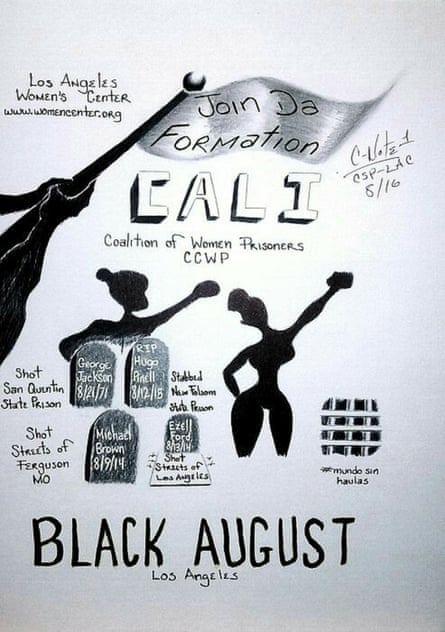 Los Angeles
Women's Center
www.womencenter.org
Join Da
Formation
C-Note-1
CSP-LAC
8/16
CALI
Coalition of Women Prisoners
CCWP
Shot
San Quentin
State Prison
George
Jackson
8/21/71
RIP
Hugo
Pinell
8/12/15
Stabbed
New Folsom
State Prison
Shot
Streets of
Ferguson
MO
Michael
Brown
8/9/14
Ezell
Ford
Shot
Streets of
Los Angeles
mundo sin
haulas
BLACK AUGUST
Los Angeles